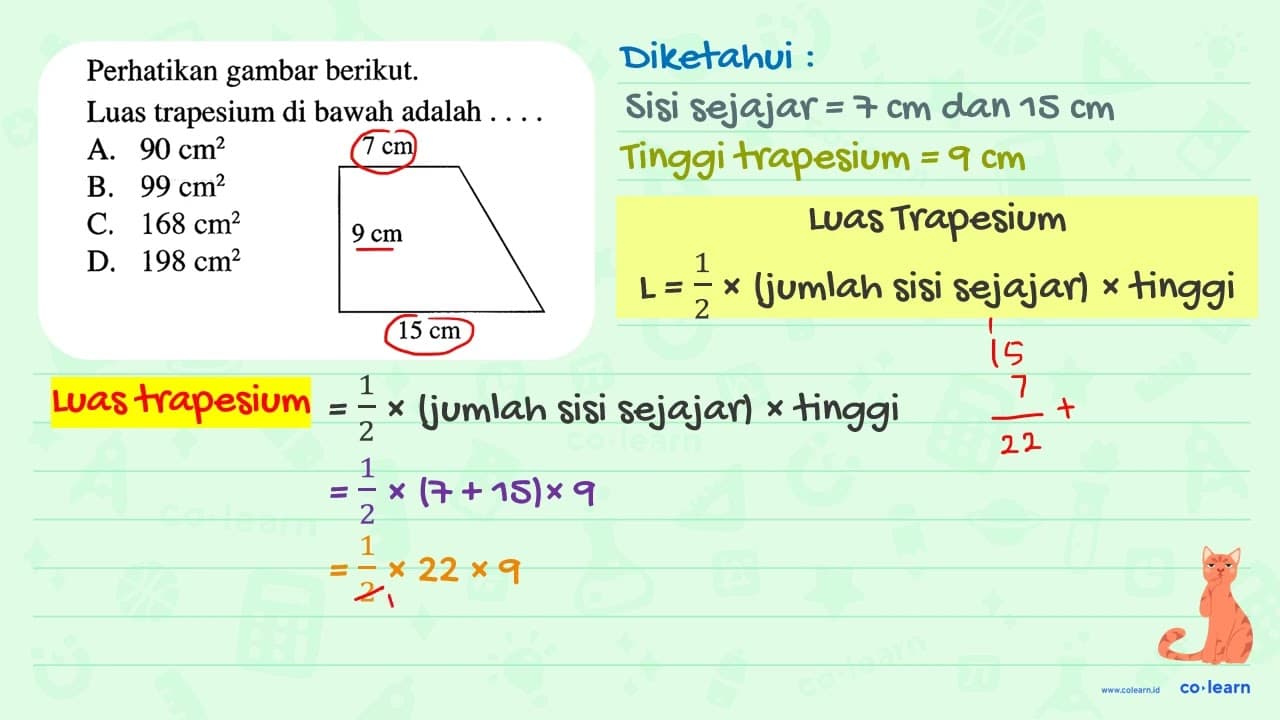 Perhatikan gambar berikut.
Luas trapesium di bawah adalah . . . .
A. 90 cm²
B. 99 cm²
C. 168 cm²
D. 198 cm²
7 cm
9 cm
15 cm
Diketahui :
Sisi sejajar = 7 cm dan 15 cm
Tinggi trapesium = 9 cm
Luas Trapesium
L = 1/2 × (jumlah sisi sejajar) × tinggi
1
15
7
+
22
Luas trapesium = 1/2 × (jumlah sisi sejajar) × tinggi
= 1/2 × (7 + 15) × 9
= 1/2 × 22 × 9
1
co·learn
co·learn
co·learn
www.colearn.id
co·learn